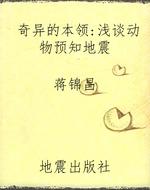 奇异的本领:浅谈动
物预知地震
蒋锦昌
地震出版社